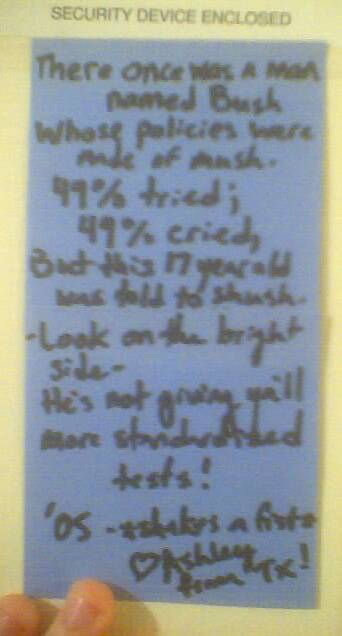 SECURITY DEVICE ENCLOSED
There once was a man
named Bush
Whose policies were
made of mush.
49% tried;
49% cried,
But this 17 year old
was told to shush.
-Look on the bright
side-
He's not giving ya'll
more standardized
tests!
'05 - *shakes a fist*
♡Ashley
from TX!